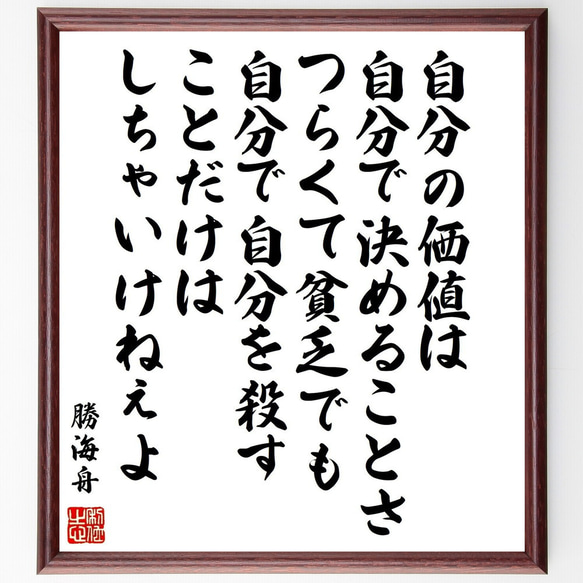 自分の価値は
自分で決めることさ
つらくて貧乏でも
自分で自分を殺す
ことだけは
しちゃいけねぇよ
勝海舟